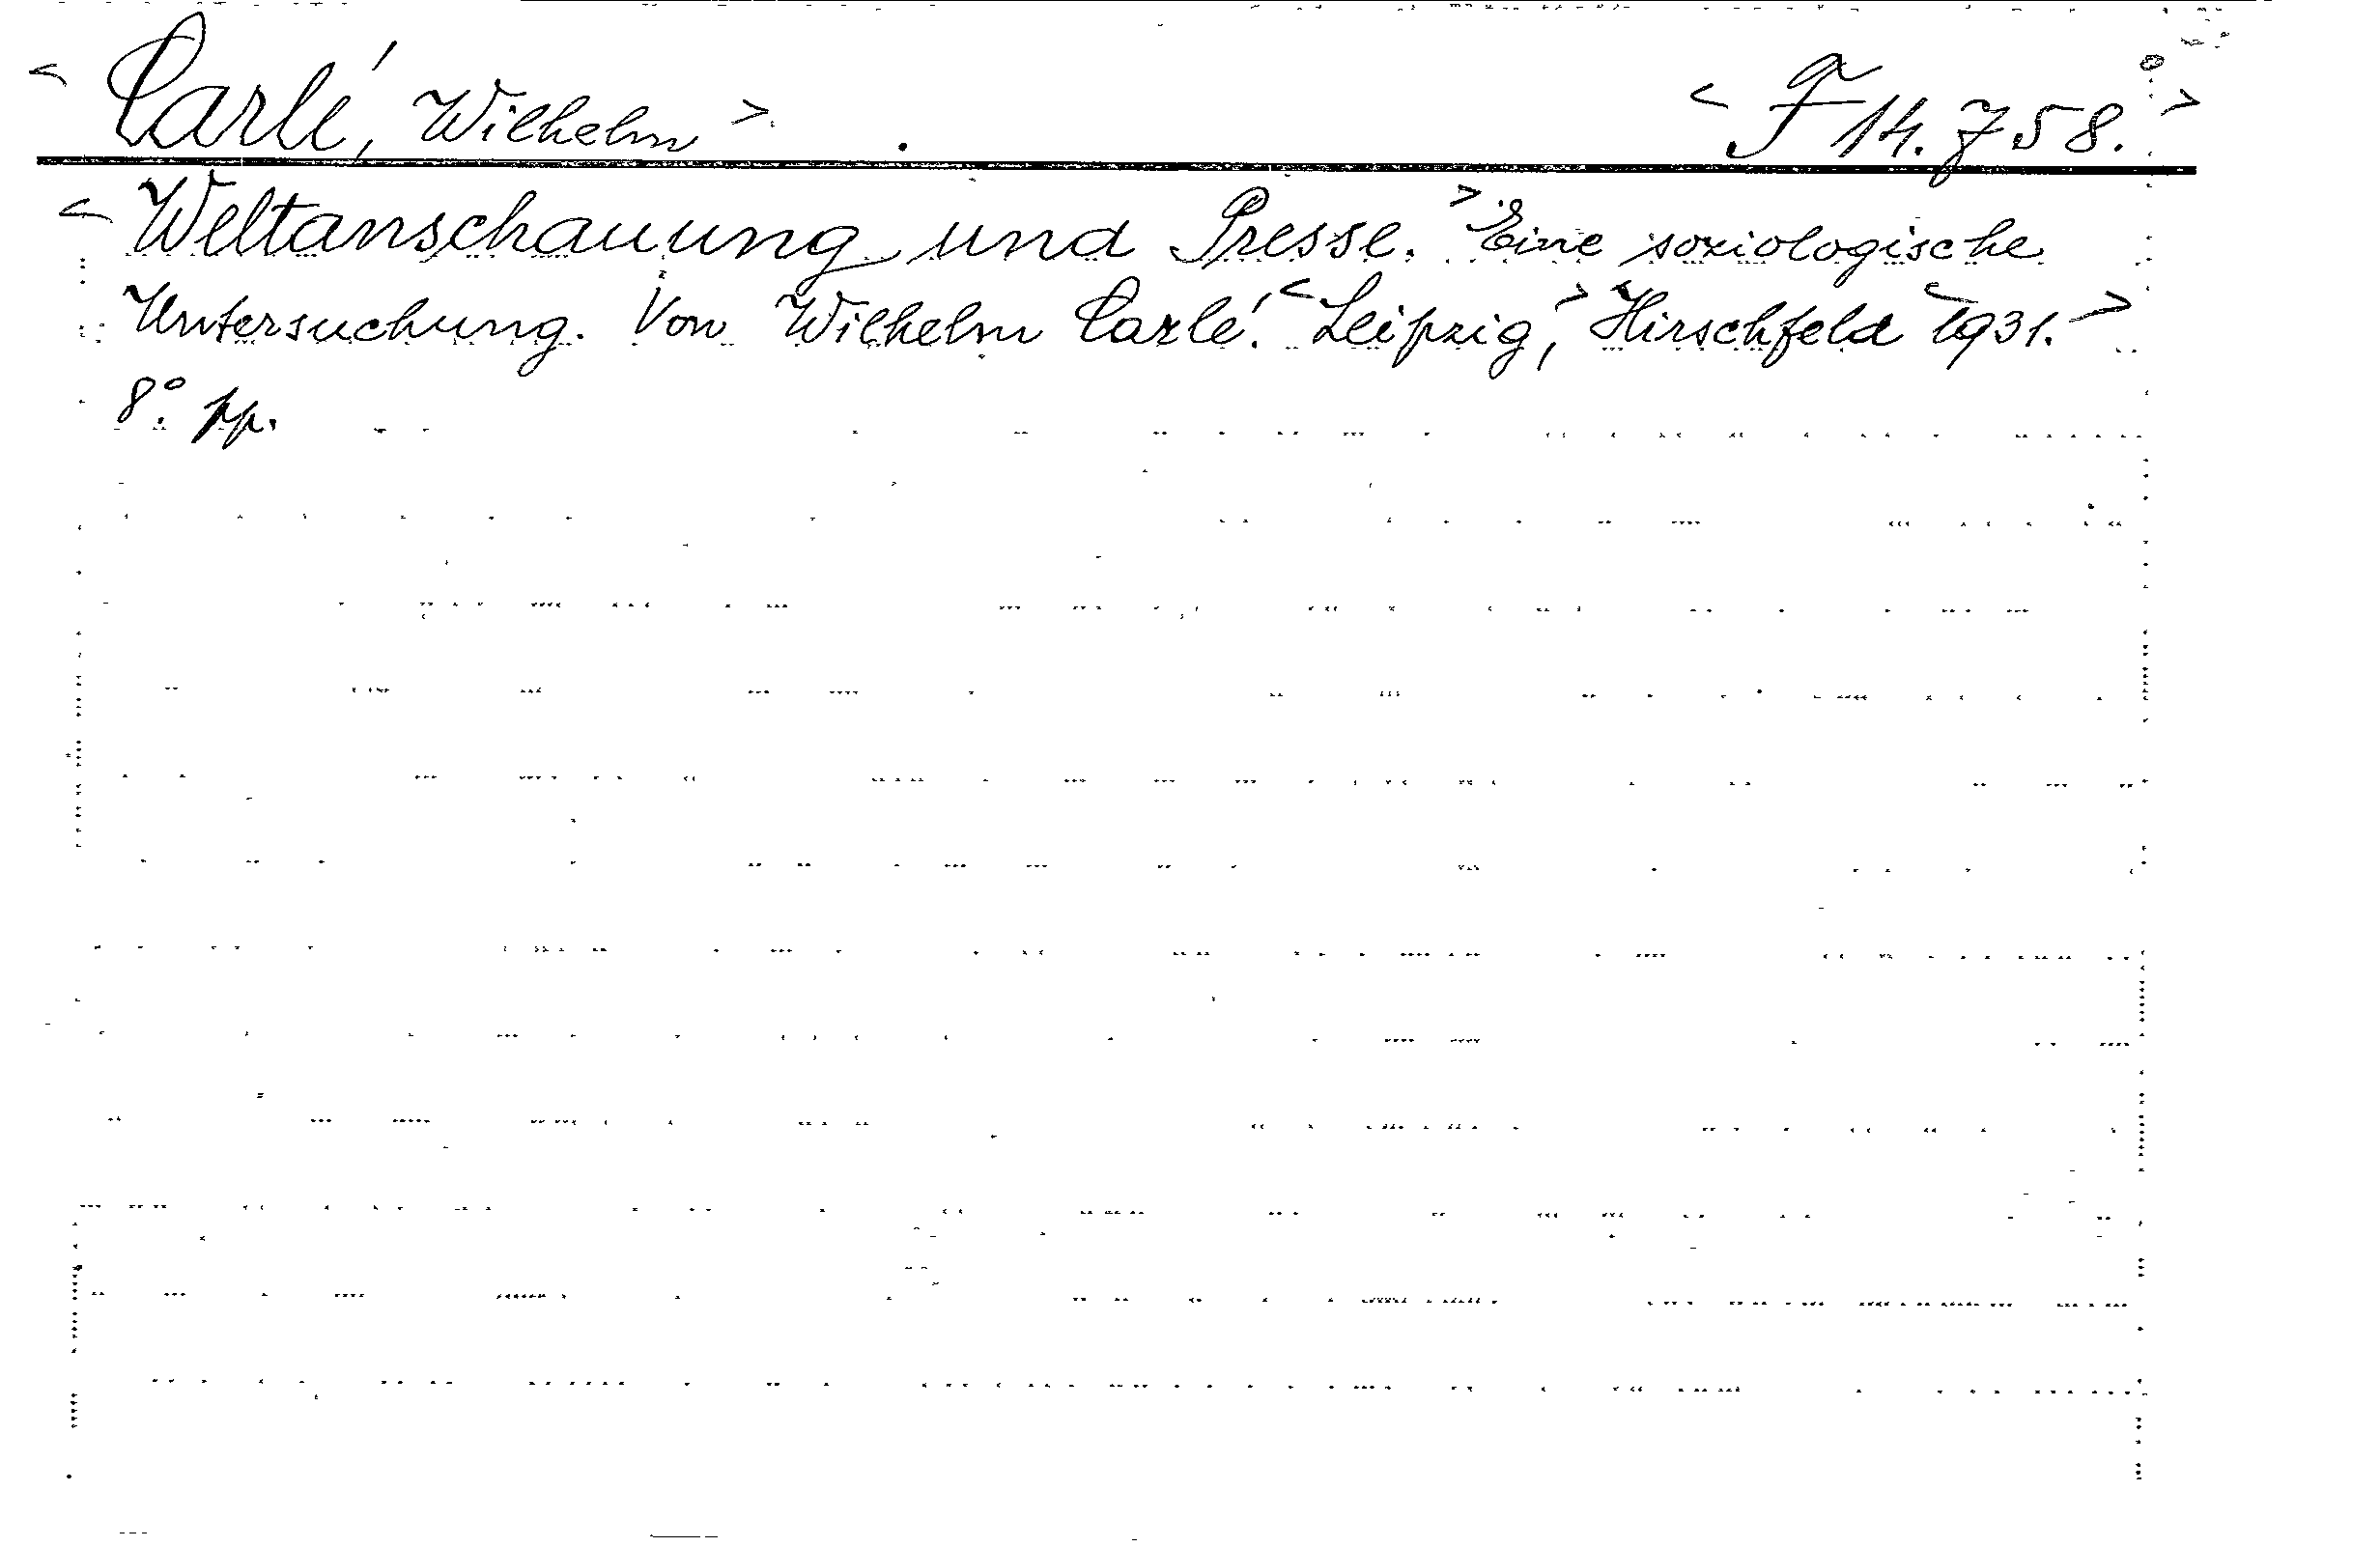 < Carlé, Wilhelm >. < F 14.758. >
< Weltanschauung und Presse. > Eine soziologische
Untersuchung. Von Wilhelm Carlé. < Leipzig, > Hirschfeld < 1931. >
8°. pp.